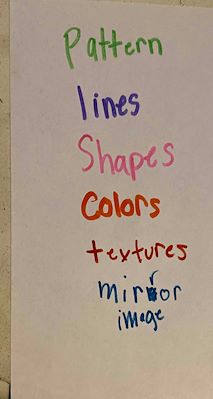 Pattern
lines
Shapes
Colors
textures
mirror
image